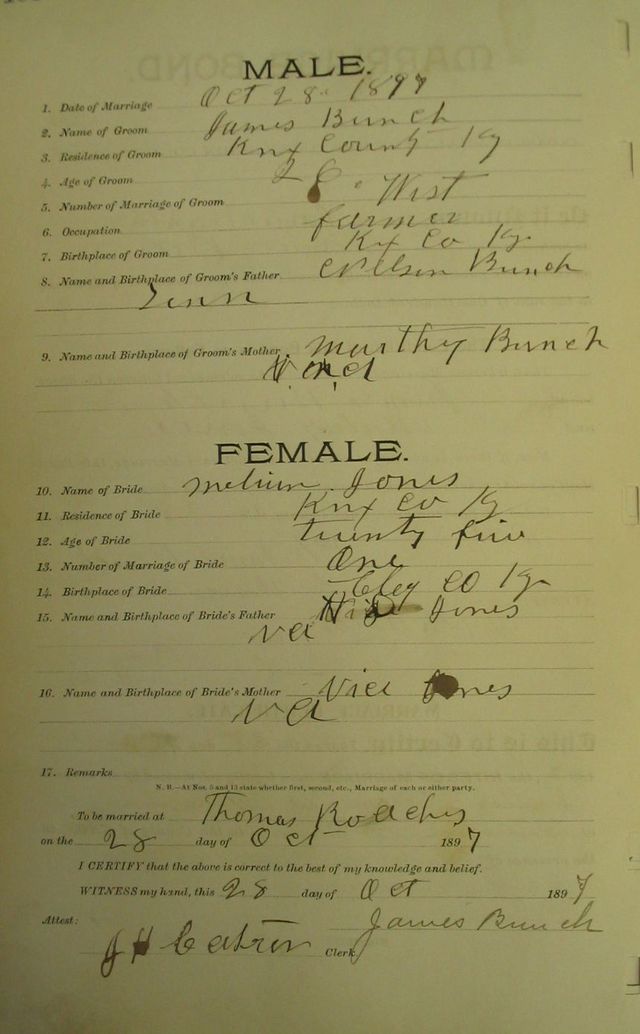 MALE.
1. Date of Marriage Oct 28 1897
2. Name of Groom James Bunch
3. Residence of Groom Knx County Ky
4. Age of Groom 26
5. Number of Marriage of Groom
6. Occupation farmer
7. Birthplace of Groom Kx Co Ky
8. Name and Birthplace of Groom's Father Bunch
Tenn
9. Name and Birthplace of Groom's Mother Marthy Bunch
FEMALE.
10. Name of Bride Jones
11. Residence of Bride Knx Co Ky
12. Age of Bride twenty five
13. Number of Marriage of Bride One
14. Birthplace of Bride Cley CO Ky
15. Name and Birthplace of Bride's Father Jones
va
16. Name and Birthplace of Bride's Mother Jones
VA
17. Remarks
N. B.—At Nos. 5 and 13 state whether first, second, etc., Marriage of each or either party.
To be married at Thomas Roaches
on the 28 day of Oct 1897
I CERTIFY that the above is correct to the best of my knowledge and belief.
WITNESS my hand, this 28 day of Oct 1897
Attest: James Bunch
J H Catron Clerk